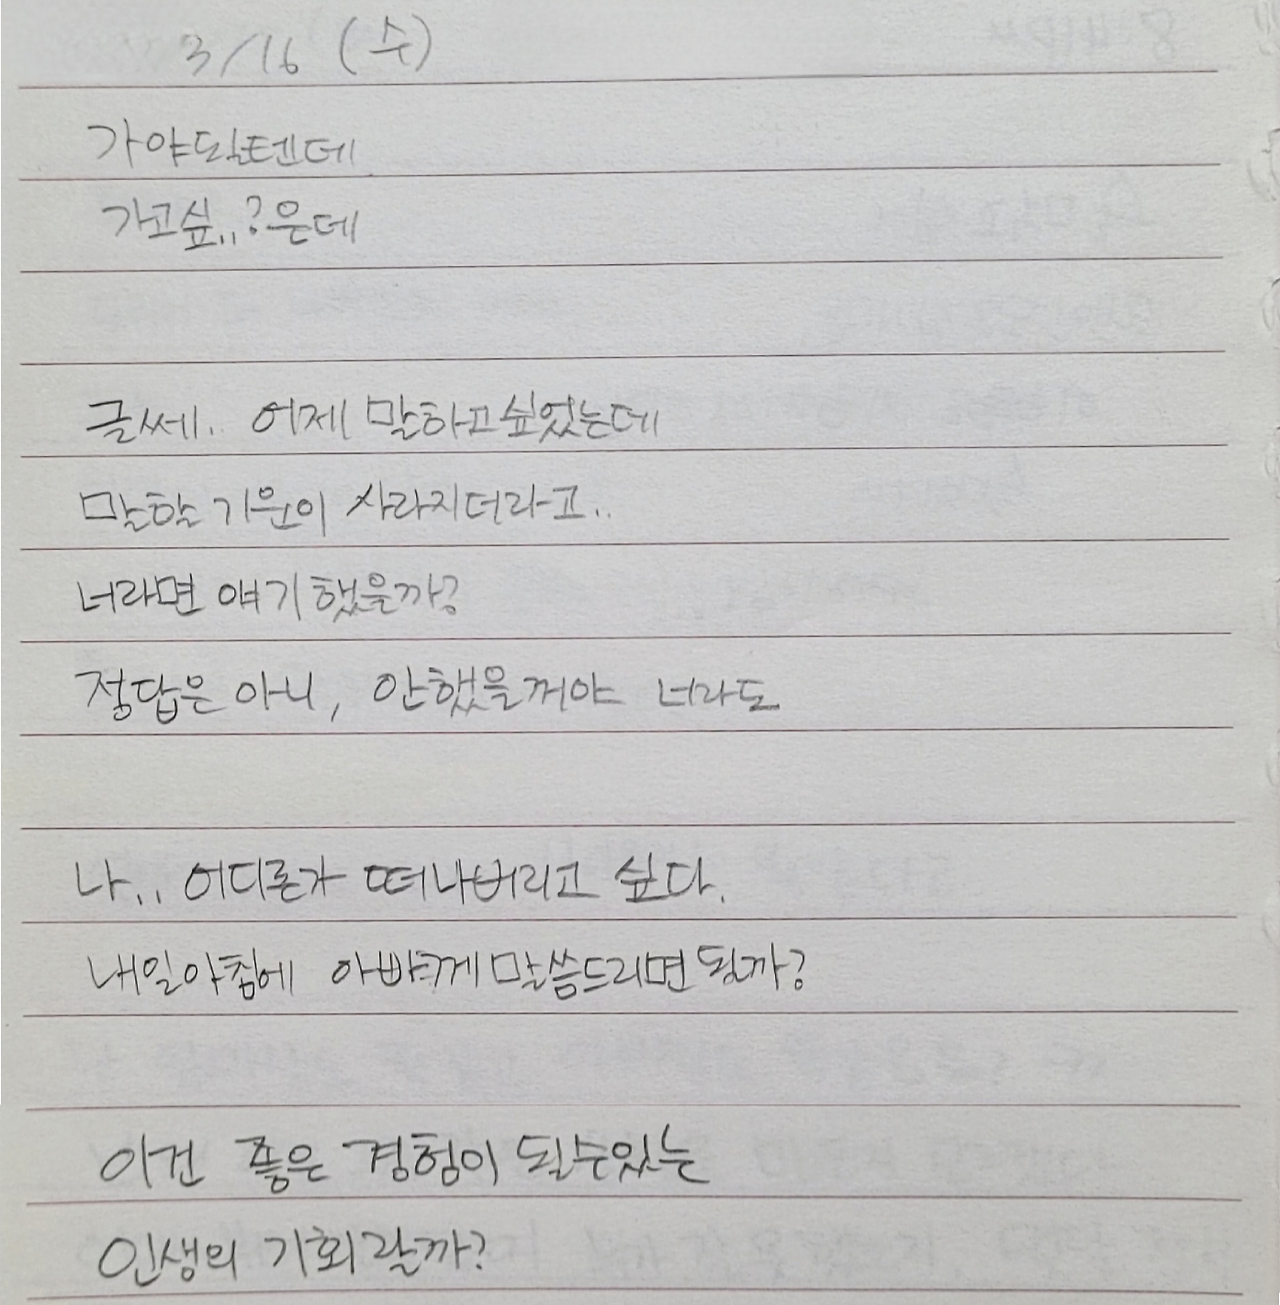 3/16 (수)
가야될텐데
가고싶..?은데
글쎄.. 어제 말하고싶었는데
말할 기운이 사라지더라고..
너라면 얘기했을까?
정답은 아니, 안했을꺼야 너라도
나.. 어디론가 떠나버리고 싶다.
내일아침에 아빠께 말씀드리면될까?
이건 좋은 경험이 될수있는
인생의 기회랄까?